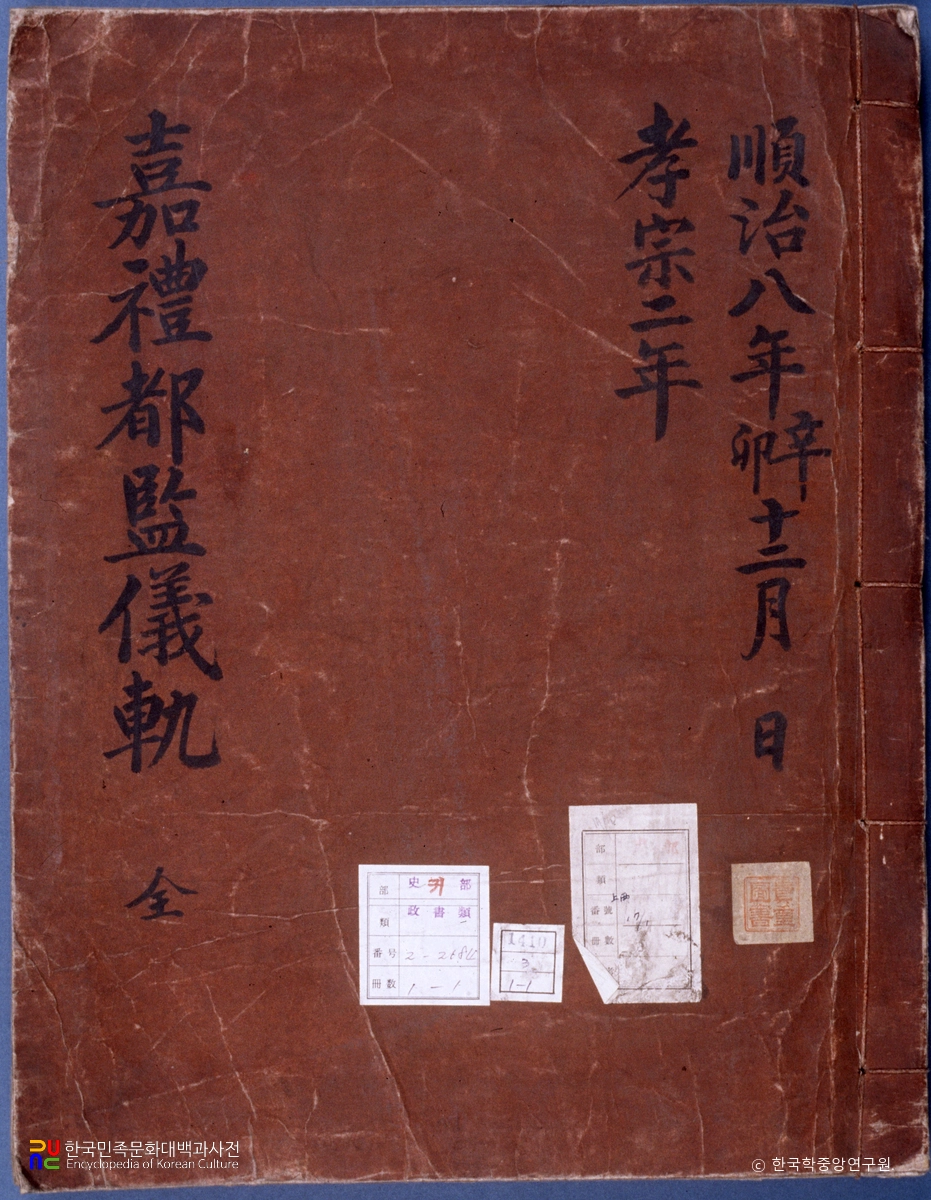 順治八年辛卯十二月 日
孝宗二年
嘉禮都監儀軌 全
部 史 部
類 政書類
番号 2-
冊数 1-1
3
1-1
部
類
番號
冊數
한국민족문화대백과사전
Encyclopedia of Korean Culture
ⓒ 한국학중앙연구원